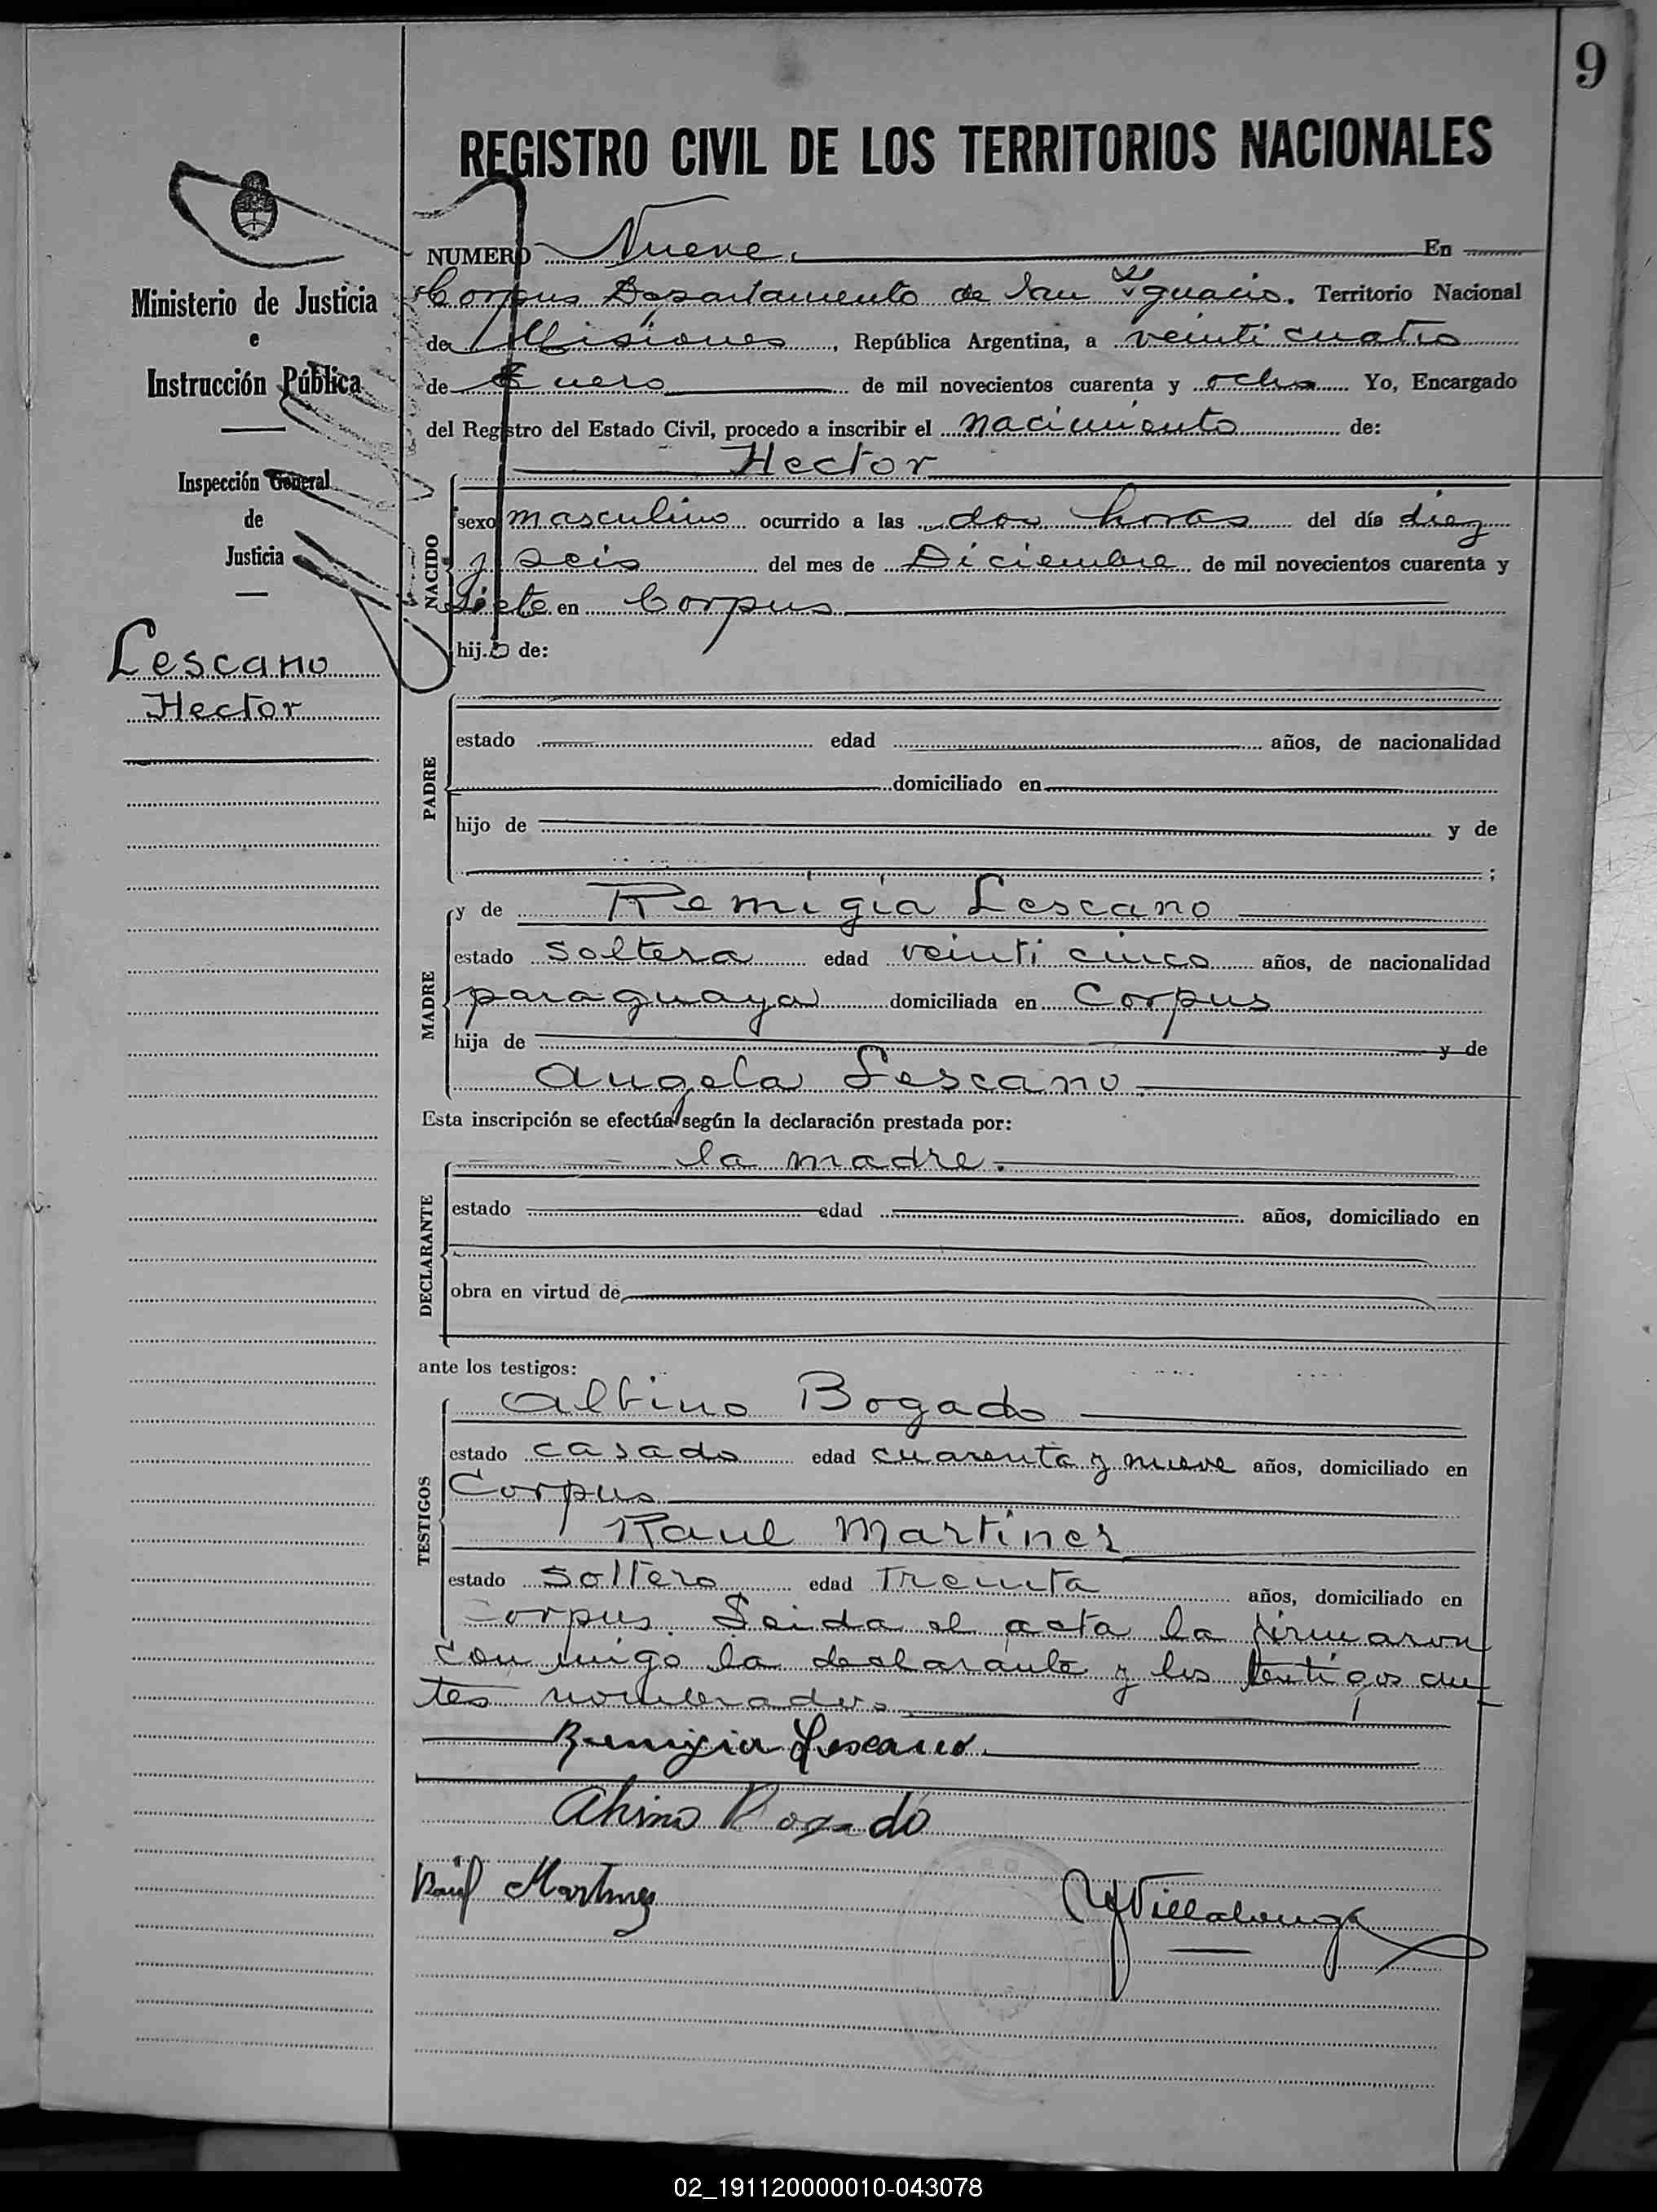 9
REGISTRO CIVIL DE LOS TERRITORIOS NACIONALES
Ministerio de Justicia
e
Instrucción Pública
Inspección General
de
Justicia
Lescano
Hector
NUMERO Nueve. En
Corpus Departamento de San Ygnacio. Territorio Nacional
de Misiones, República Argentina, a veinti cuatro
de Enero de mil novecientos cuarenta y ocho Yo, Encargado
del Registro del Estado Civil, procedo a inscribir el nacimiento de:
Hector
NACIDO
sexo masculino ocurrido a las dos horas del día diez
y seis del mes de Diciembre de mil novecientos cuarenta y
siete en Corpus
hij.o de:
PADRE
estado edad años, de nacionalidad
domiciliado en
hijo de y de
;
MADRE
y de Remigia Lescano
estado soltera edad veinti cinco años, de nacionalidad
paraguaya domiciliada en Corpus
hija de y de
Angela Lescano
Esta inscripción se efectúa según la declaración prestada por:
la madre.
DECLARANTE
estado edad años, domiciliado en
obra en virtud de
ante los testigos:
TESTIGOS
Albino Bogado
estado casado edad cuarenta y nueve años, domiciliado en
Corpus
Raul Martinez
estado soltero edad Treinta años, domiciliado en
Corpus. Leida el acta la firmaron
con migo la declarante y los testigos an
tes nombrados
Remigia Lescano.
Albino Bogado
Raúl Martinez
Villalonga
02_191120000010-043078